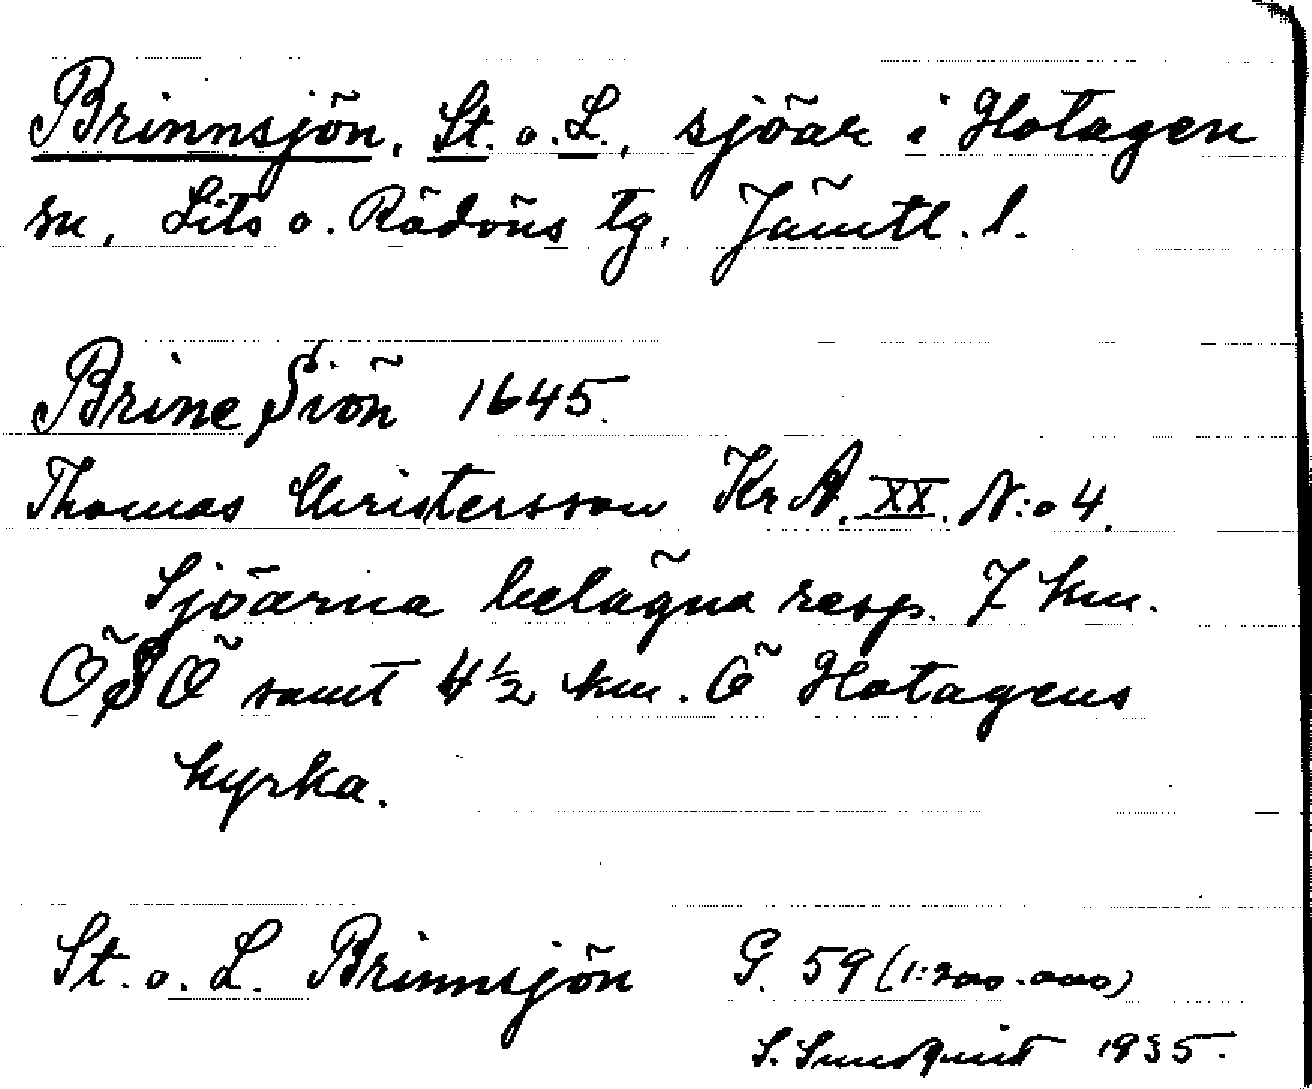 Brinnsjön, St. o. L., sjöar i Hotagen
sn, Lits o. Rödöns tg, Jämtl. l.
Brine Siön 1645.
Thomas Christersson Kr A. XX. N:o 4.
Sjöarna belägna resp. 7 km.
ÖSÖ samt 4½ km. Ö Hotagens
kyrka.
St. o. L. Brinnsjön G. 59 (1:200.000)
S. Sundquist 1935.